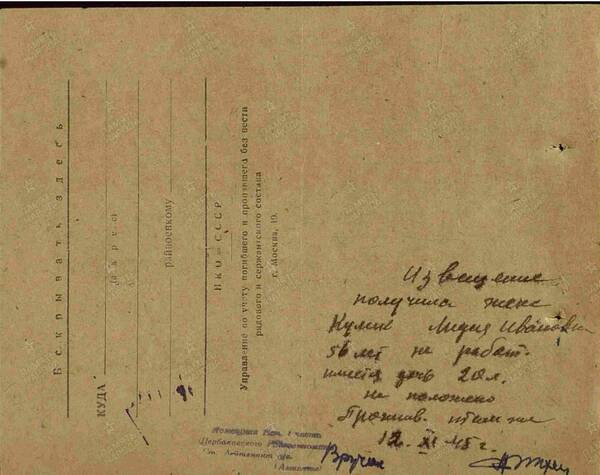 Вскрывать здесь
КУДА
райвоенкому
НКО—СССР
Управление по учету погибшего и пропавшего без вести
рядового и сержантского состава
г. Москва, 19.
Извещение
получила жена
Кулик Лидия Ивановна
56 лет не работ.
имеет дочь 20 л.
не положено
Прожив. там же
12. XI 45 г.
Вручил
Помощник Нач. 1 части
Щербаковского Райвоенкомата
Лейтенант